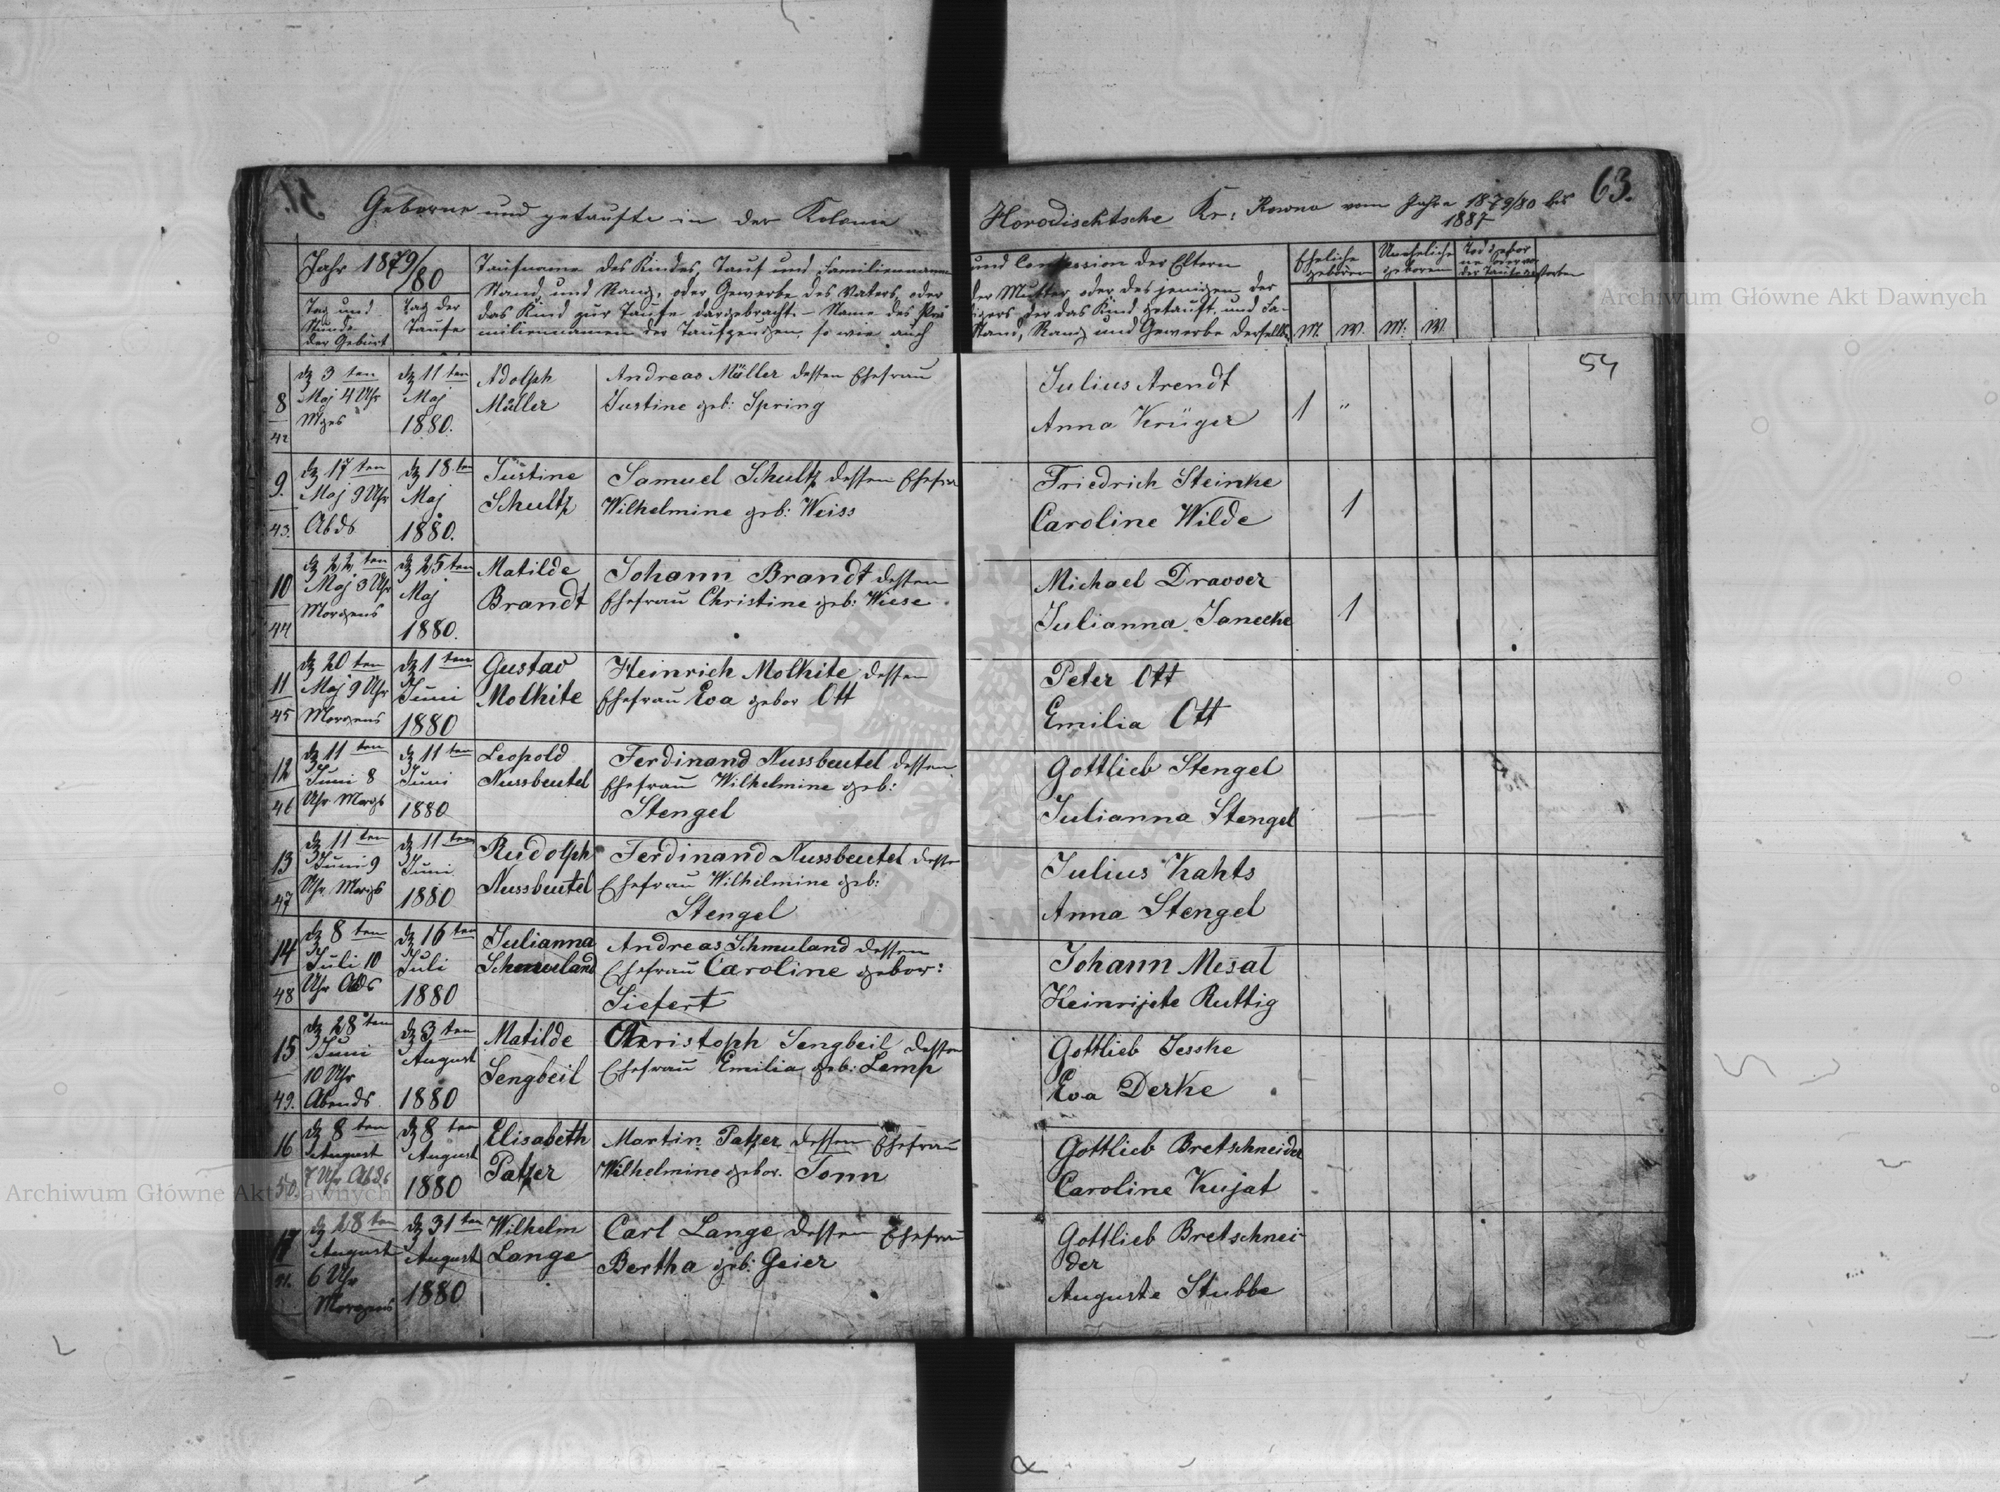 Geborne und getaufte in der Kolonie Horodischtsche Kr: Rowno vom Jahre 1879/80 bis
1887
63.
51.
54
Jahr 1879/80
Tag und
Stunde
der Geburt
Tag der
Taufe
Taufname des Kindes, Tauf und Familienname und Confession der Eltern
Stand und Rang, oder Gewerbe des Vaters, oder der Mutter oder desjenigen der
das Kind zur Taufe dargebracht. Name des der das Kind getauft, und Fa-
miliennamen der Taufzeugen, so wie auch Stand, Rang und Gewerbe derselb.
Eheliche
geboren
Uneheliche
geboren
Todgebor
der Taufe gestorben
M. W. M: W.
8
42
d 3 ten
Maj 4 Uhr
Mgs
d 11 ten
Maj
1880.
Adolph
Müller
Andreas Müller dessen Ehefrau
Justine geb: Spring
Julius Arendt
Anna Krüger
1 "
9.
43.
d 17 ten
Maj 9 Uhr
Abds
d 18 ten
Maj
1880.
Justine
Schultz
Samuel Schultz dessen Ehefra
Wilhelmine geb: Weiss
Friedrich Steinke
Caroline Wilde
1
10
44
d 22 ten
Maj 3 Uhr
Morgens
d 25 ten
Maj
1880.
Matilde
Brandt
Johann Brandt dessen
Ehefrau Christine geb: Wiese.
Michael Drawer
Julianna Janecke
1
11
45
d 20 ten
Maj 9 Uhr
Morgens
d 1 ten
Juni
1880
Gustav
Molkite
Heinrich Molkite dessen
Ehefrau Eva gebor Ott
Peter Ott
Emilia Ott
12
46
d 11 ten
Juni 8
Uhr Morgs
d 11 ten
Juni
1880
Leopold
Nussbeutel
Ferdinand Nussbeutel dessen
Ehefrau Wilhelmine geb:
Stengel
Gottlieb Stengel
Julianna Stengel
13
47
d 11 ten
Juni 9
Uhr Morgs
d 11 ten
Juni
1880
Rudolph
Nussbeutel
Ferdinand Nussbeutel desse
Ehefrau Wilhelmine geb:
Stengel
Julius Kahts
Anna Stengel
14
48
d 8 ten
Juli 10
Uhr Abds
d 16 ten
Juli
1880
Julianna
Schmuland
Andreas Schmuland dessen
Ehefrau Caroline gebor:
Siefert
Johann Mesal
Heinrijete Ruttig
15
49.
d 28 ten
Juni
10 Uhr
Abends
d 3 ten
August
1880
Matilde
Sengbeil
Christoph Sengbeil dessen
Ehefrau Emilia geb: Lemp
Gottlieb Jesske
Eva Derke
16
50.
d 8 ten
August
7 Uhr Abds
d 8 ten
August
1880
Elisabeth
Patzer
Martin Patzer dessen Ehefrau
Wilhelmine gebor. Tonn
Gottlieb Bretschneider
Caroline Kujat
17
51.
d 28 ten
August
6 Uhr
Morgens
d 31 ten
August
1880
Wilhelm
Lange
Carl Lange dessen Ehefrau
Bertha geb: Geier
Gottlieb Bretschnei-
der
Auguste Stubbe
Archiwum Główne Akt Dawnych
Archiwum Główne Akt Dawnych